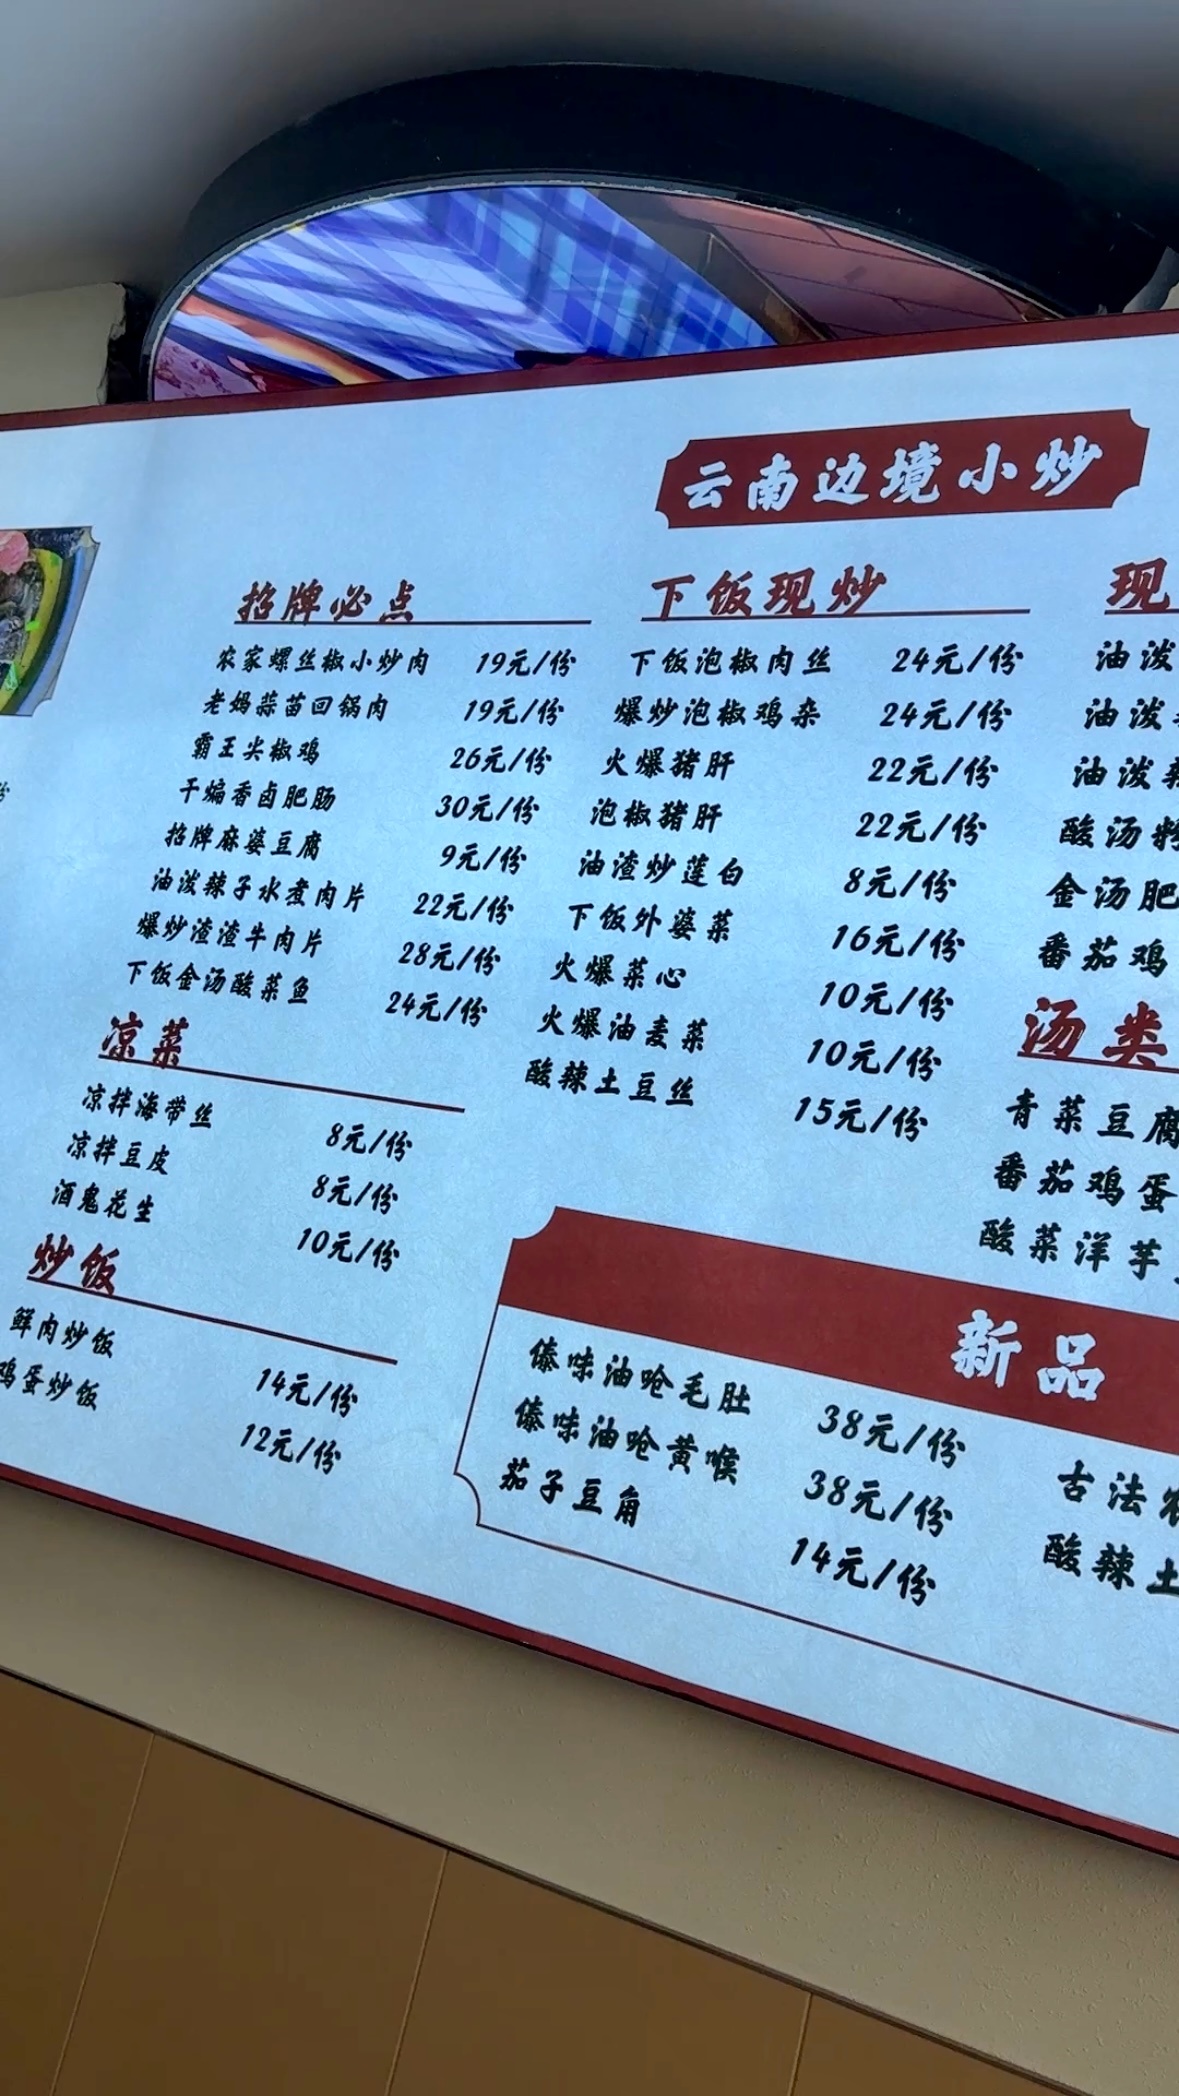 云南边境小炒
招牌必点
农家螺丝椒小炒肉 19元/份
老妈蒜苗回锅肉 19元/份
霸王尖椒鸡 26元/份
干煸香卤肥肠 30元/份
招牌麻婆豆腐 9元/份
油泼辣子水煮肉片 22元/份
爆炒渣渣牛肉片 28元/份
下饭金汤酸菜鱼 24元/份
凉菜
凉拌海带丝 8元/份
凉拌豆皮 8元/份
酒鬼花生 10元/份
炒饭
鲜肉炒饭 14元/份
鸡蛋炒饭 12元/份
下饭现炒
下饭泡椒肉丝 24元/份
爆炒泡椒鸡杂 24元/份
火爆猪肝 22元/份
泡椒猪肝 22元/份
油渣炒莲白 8元/份
下饭外婆菜 16元/份
火爆菜心 10元/份
火爆油麦菜 10元/份
酸辣土豆丝 15元/份
现
油泼
油泼
油泼
酸汤
金汤肥
番茄鸡
汤类
青菜豆腐
番茄鸡蛋
酸菜洋芋
新品
傣味油呛毛肚 38元/份
傣味油呛黄喉 38元/份
茄子豆角 14元/份
古法
酸辣土